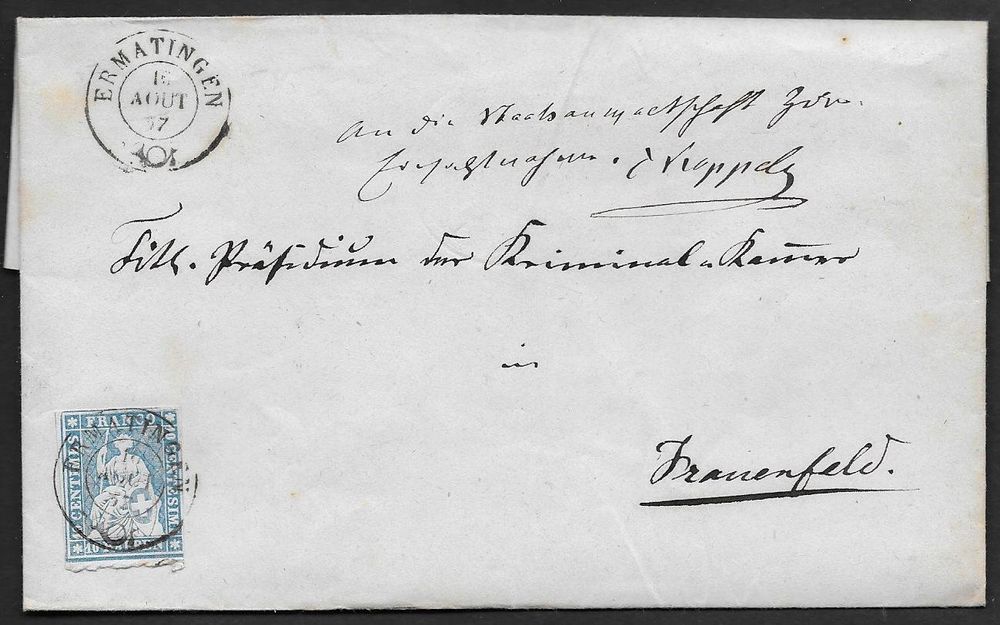 ERMATINGEN
16
AOUT
57
An die Staatsanwaltschaft zur
Einsichtnahme.
Titl. Präsidium der Kriminal-Kammer
in
Frauenfeld.
FRANCO
10 CENTESIMI
10 RAPPEN
10 CENTIMES
ERMATINGEN